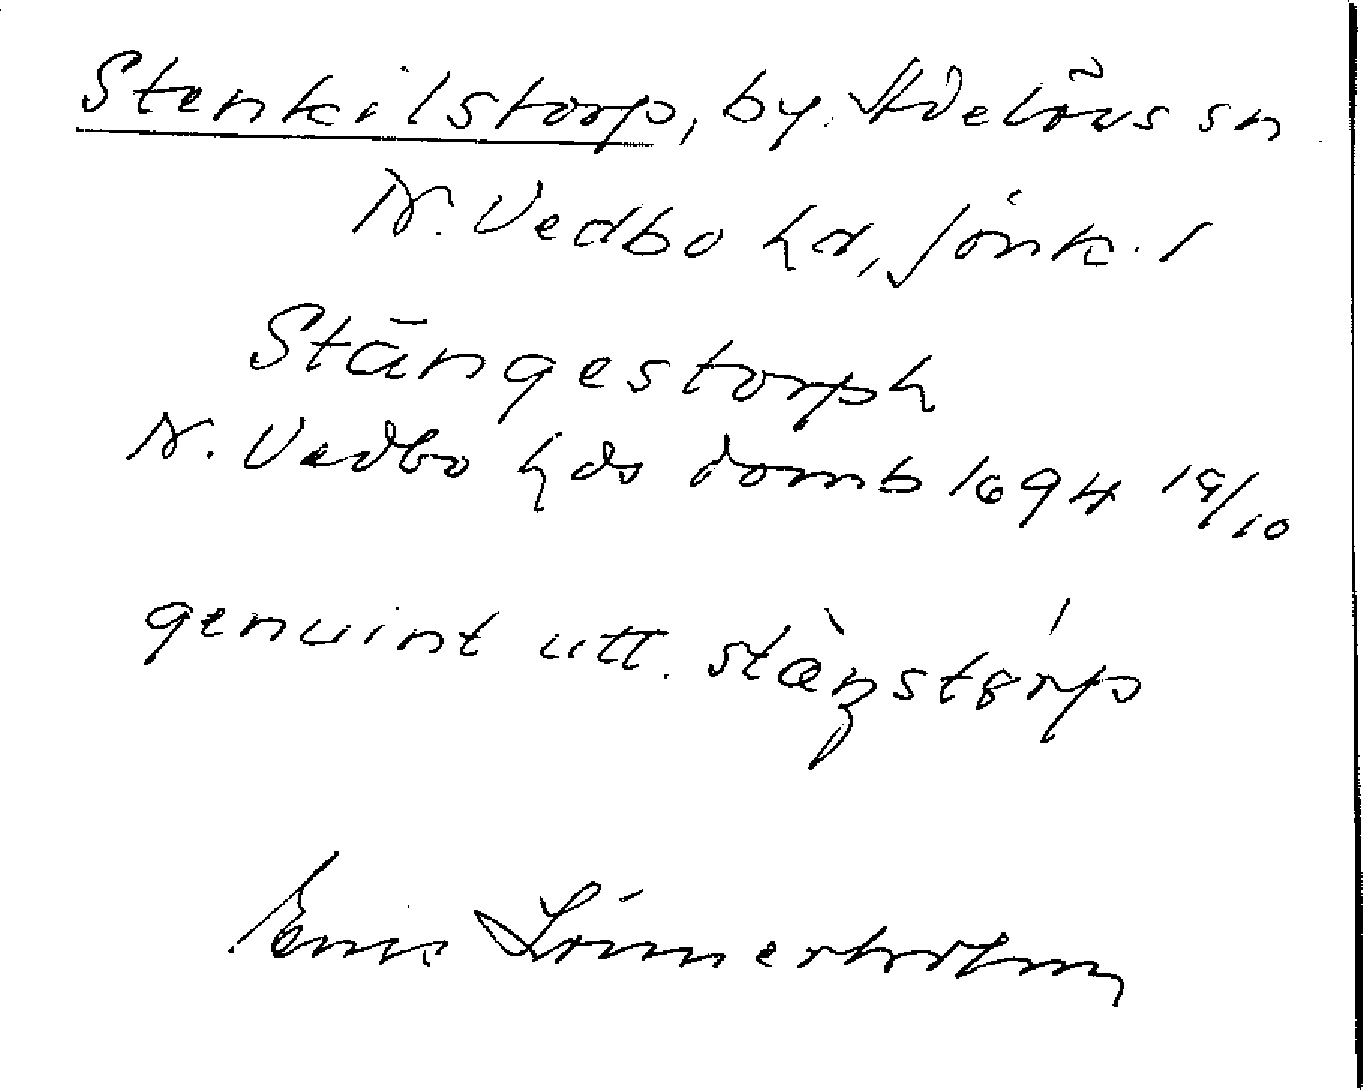 Stenkilstorp, by. Adelövs sn
N. Vedbo hd, Jönk. l
Stängestorph
N. Vedbo hds domb 1694 19/10
genuint utt. stàŋstórp
Einar Lönnerholm